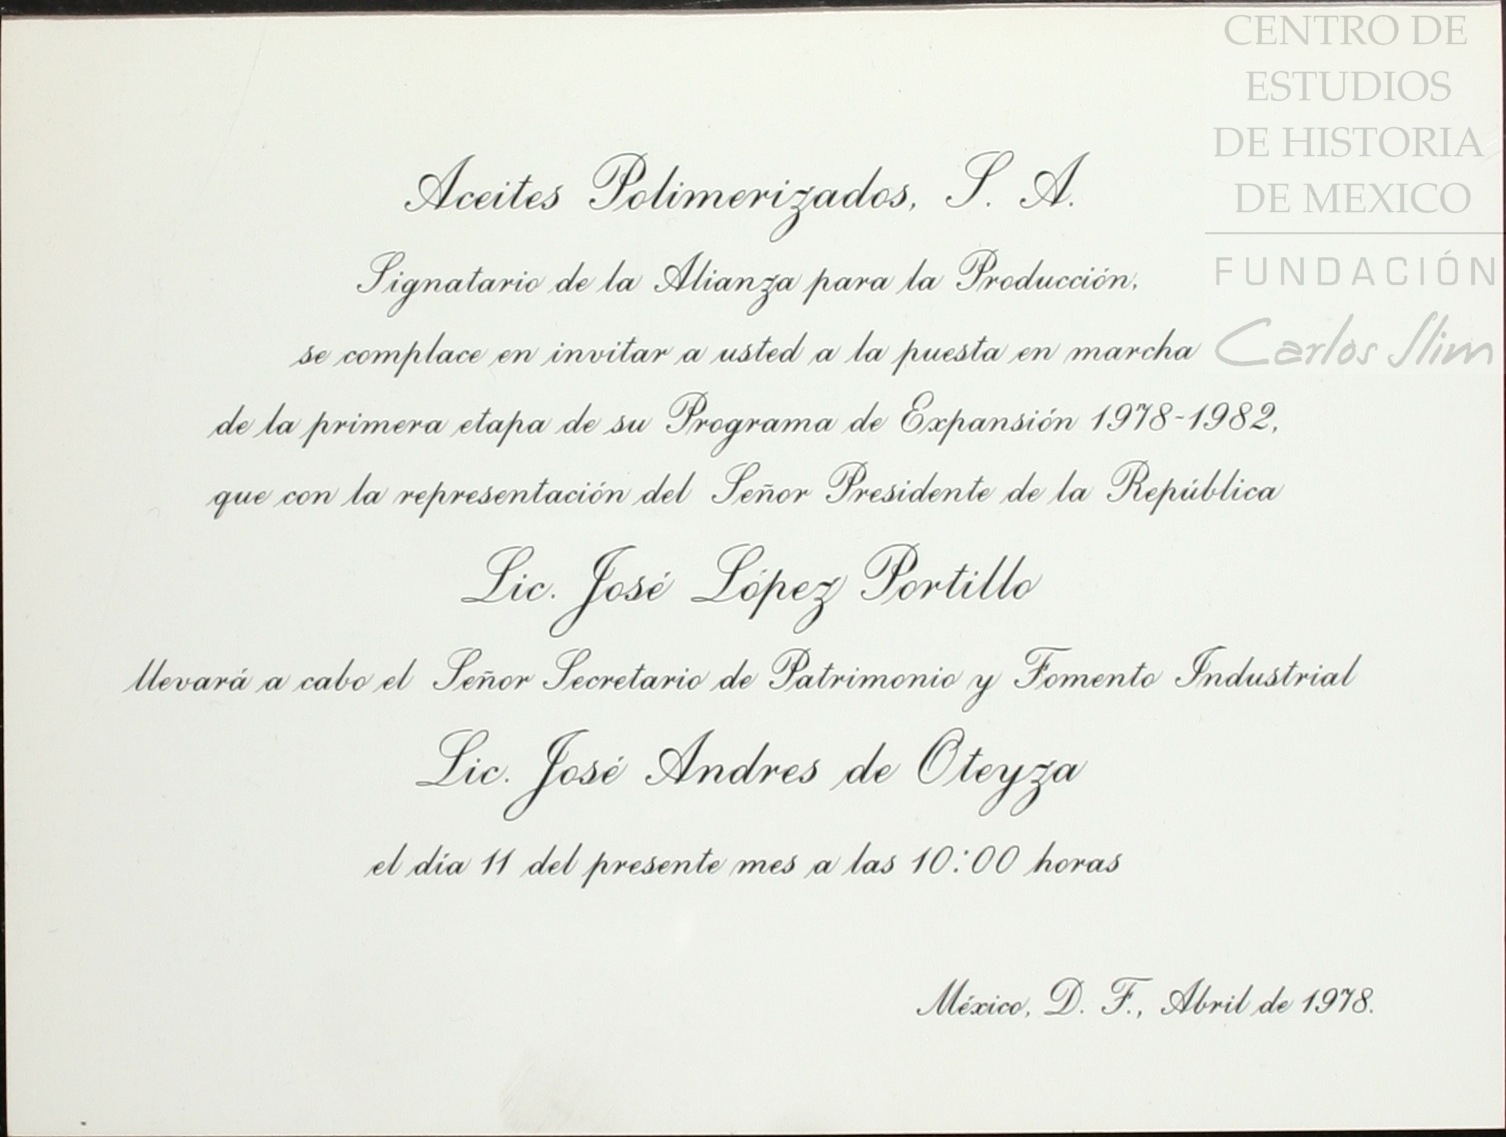 CENTRO DE
ESTUDIOS
DE HISTORIA
DE MEXICO
FUNDACIÓN
Carlos Slim
Aceites Polimerizados, S. A.
Signatario de la Alianza para la Producción,
se complace en invitar a usted a la puesta en marcha
de la primera etapa de su Programa de Expansión 1978-1982,
que con la representación del Señor Presidente de la República
Lic. José López Portillo
llevará a cabo el Señor Secretario de Patrimonio y Fomento Industrial
Lic. José Andres de Oteyza
el día 11 del presente mes a las 10:00 horas
México, D. F., Abril de 1978.